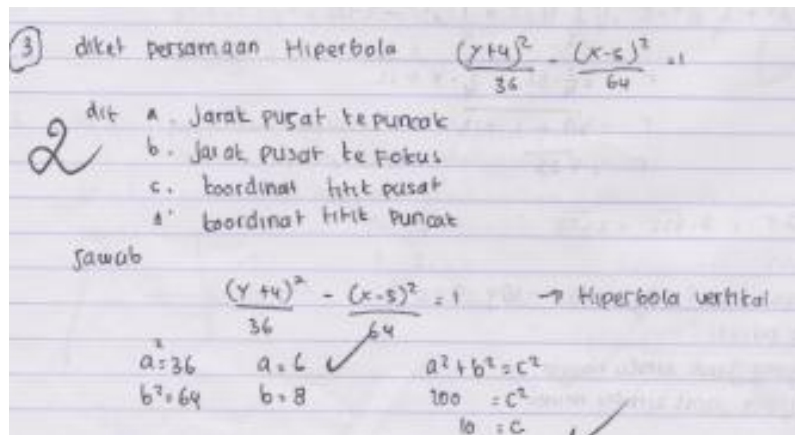 ③ diket persamaan Hiperbola (y+4)²/36 - (x-5)²/64 = 1
2 dit a. Jarak pusat ke puncak
b. Jarak pusat ke Fokus
c. koordinat titik pusat
d. koordinat titik Puncak
Jawab
(y+4)²/36 - (x-5)²/64 = 1 → Hiperbola vertikal
a²=36 a=6 a²+b²=c²
b²=64 b=8 100 =c²
10 =c